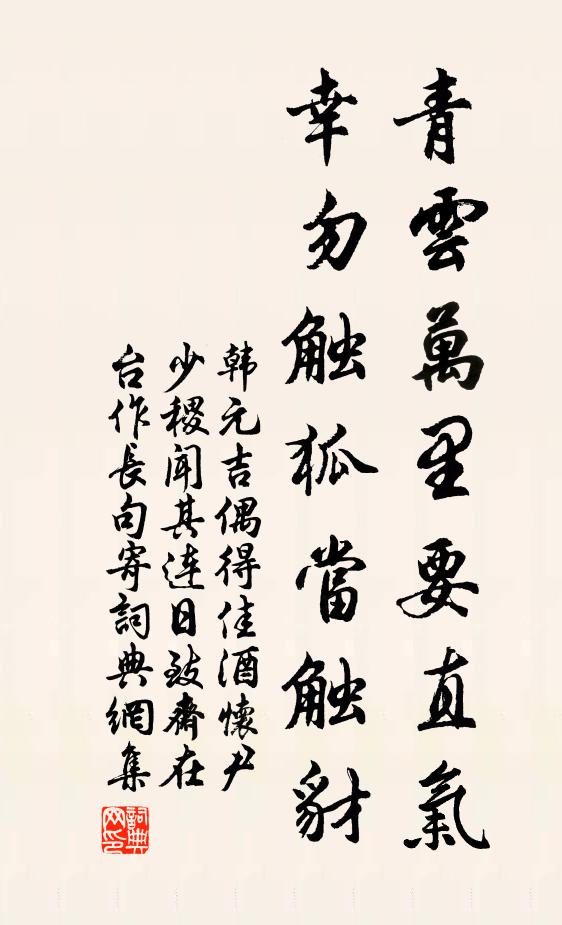 青雲萬里要直氣
幸勿触狐當触豺
韩元吉偶得佳酒懷尹
少稷闻其连日致齋在
台作長句寄詞典網集
詞典网印